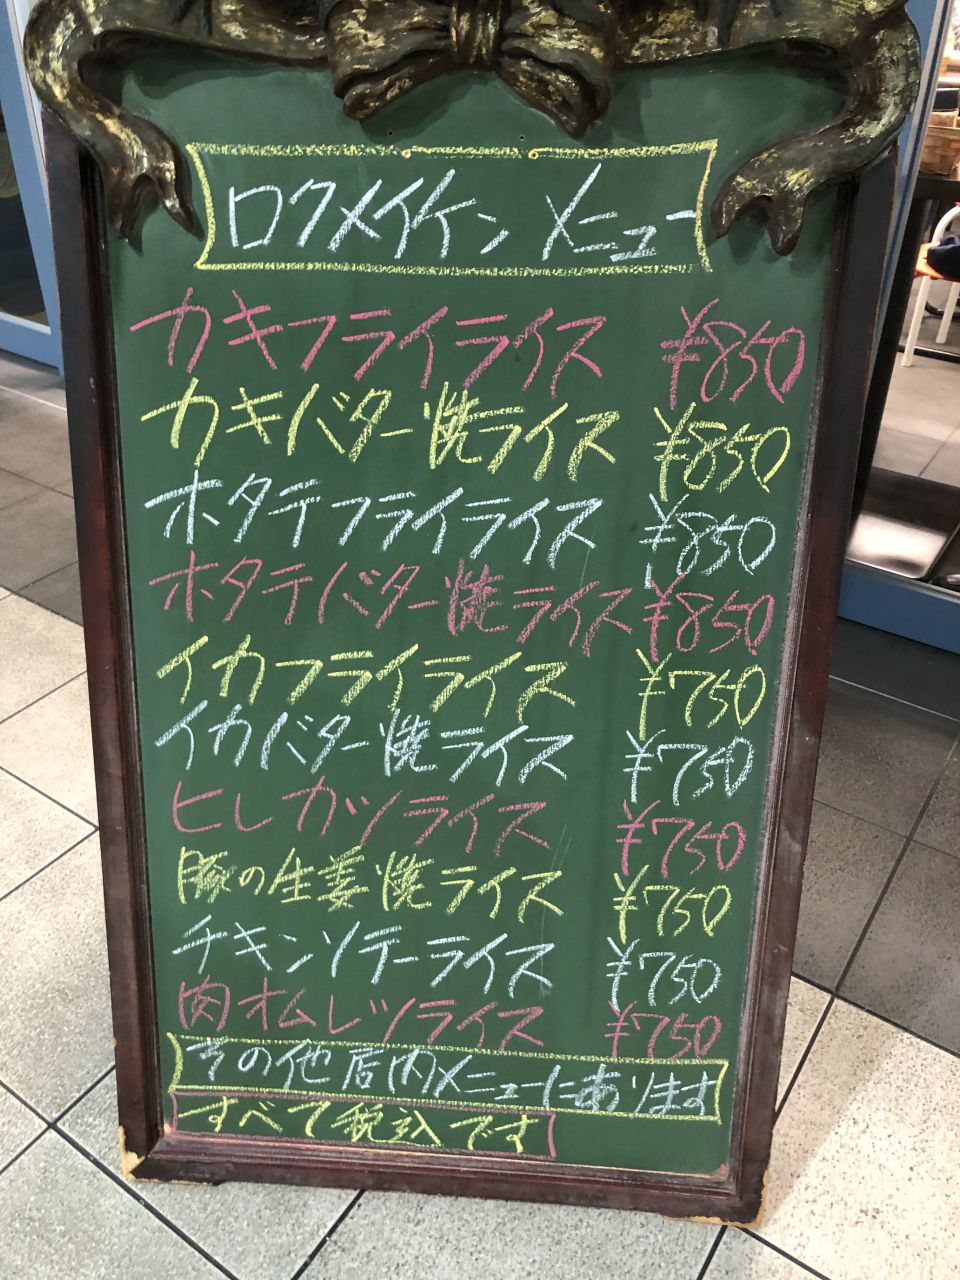 ロクメイケン メニュー
カキフライライス ¥850
カキバター焼ライス ¥850
ホタテフライライス ¥850
ホタテバター焼ライス ¥850
イカフライライス ¥750
イカバター焼ライス ¥750
ヒレカツライス ¥750
豚の生姜焼ライス ¥750
チキンソテーライス ¥750
肉オムレツライス ¥750
その他店内メニューにあります
すべて税込です